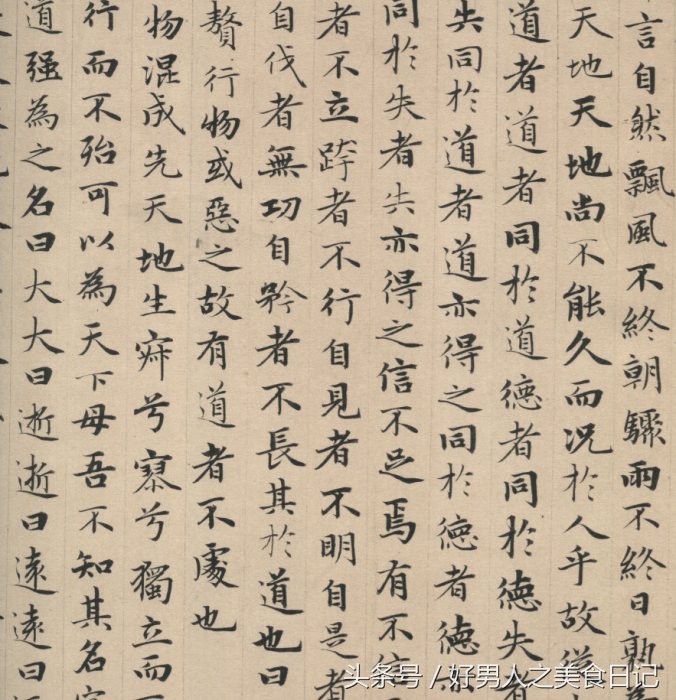 言自然飄風不終朝驟雨不終日孰
天地天地尚不能久而況於人乎故從
道者道者同於道德者同於德失
失同於道者道亦得之同於德者德亦
同於失者失亦得之信不足焉有不信
者不立跨者不行自見者不明自是者
自伐者無功自矜者不長其於道也曰
贅行物或惡之故有道者不處也
物混成先天地生寂兮寥兮獨立而
行而不殆可以為天下母吾不知其名
道强為之名曰大大曰逝逝曰遠遠曰
头条号 / 好男人之美食日记